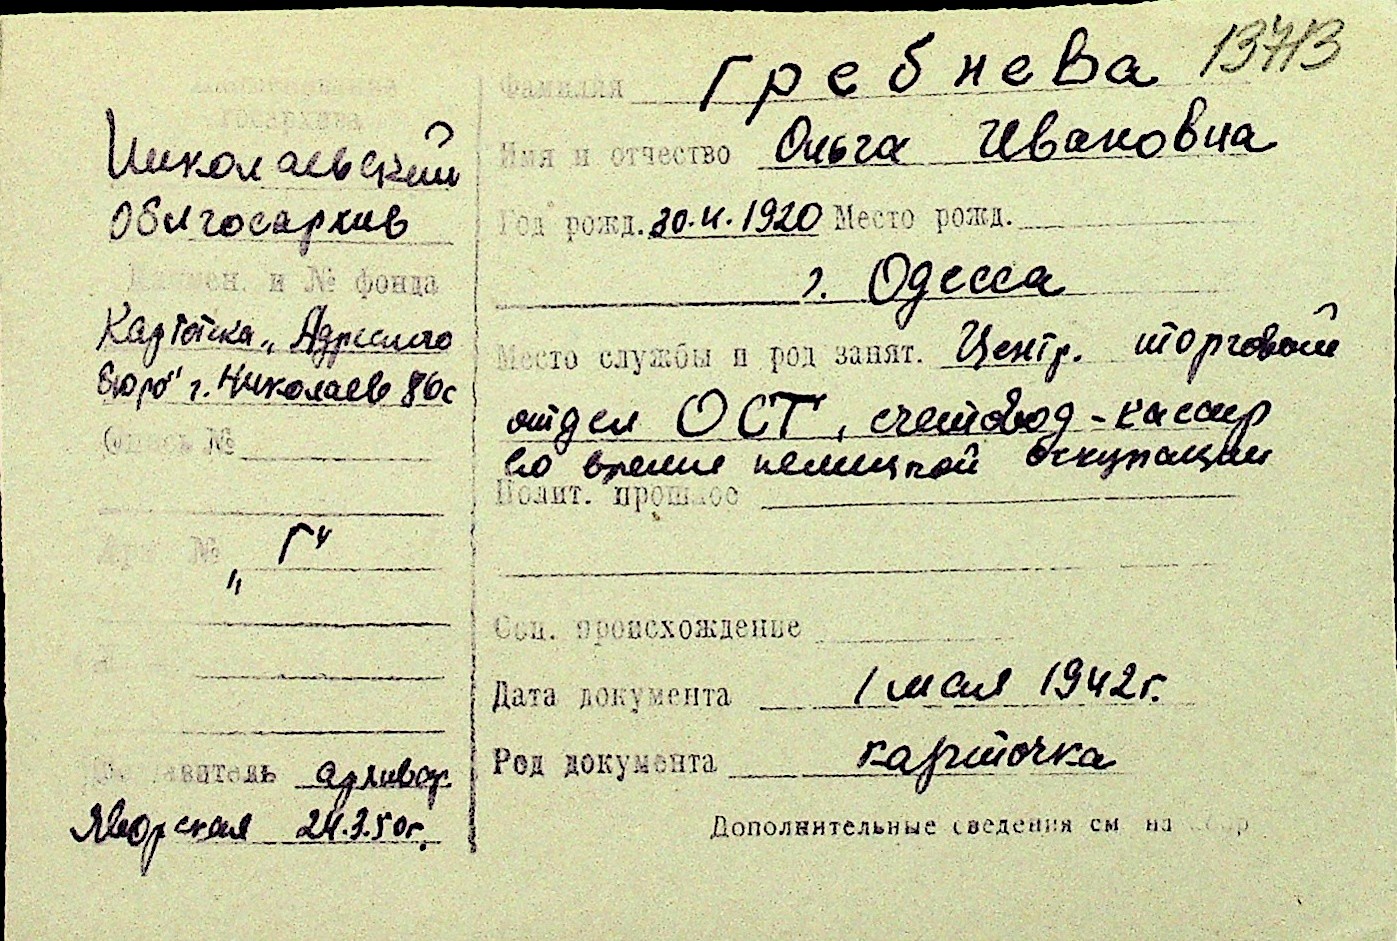 13713
Наименование
госархива
Николаевский
Облгосархив
Наимен. и № фонда
Картотека „Адресного
бюро" г. Николаев
Опись №
Арх. №
„Г"
Составитель архивар.
Яворская 24.3.50г.
Фамилия Гребнева
Имя и отчество Ольга Ивановна
Год рожд. 1920 Место рожд.
г. Одесса
Место службы и род занят. Центр. торговый
отдел ОСТ, счетовод-кассир
во время немецкой оккупации
Полит. прошлое
Соц. происхождение
Дата документа 1 мая 1942г.
Род документа карточка
Дополнительные сведения см. на обор